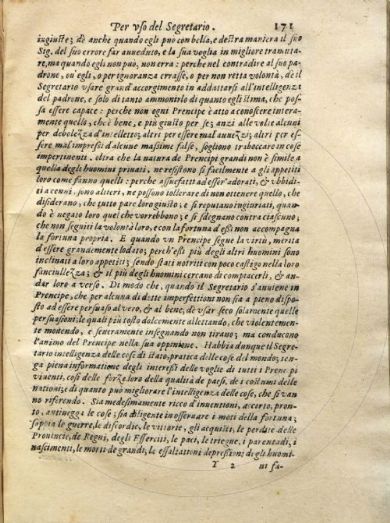 Per vso del Segretario. 171
ingiuste; dò anche quando egli può con bella, e destra maniera il suo
Sig. del suo errore far aueduto, e la sua voglia in migliore tramuta-
re, ma quando egli non può, non erra: perche nel contradire al suo pa-
drone, ou'egli, o per ignoranza errasse, o per non retta volontà, dè il
Segretario vsare grand accorgimento in adattarsi all'intelligenza
del padrone, e solo di tanto ammonirlo di quanto egli stima, che pos-
sa essere capace: perche non ogni Prencipe è atto a conoscere intera-
mente quello, ch'è bene, e più giusto per se; anzi alle volte alcuni
per debolezza d'intelletto; altri per essere mal auuezzi; altri per es-
sere mal impressi d'alcune massime false, sogliono traboccare in cose
impertinenti. oltra che la natura de Prencipi grandi non è simile a
quella degli huomini priuati, ne resistono sì facilmente a gli appetiti
loro come fanno quelli: perche assuefatti ad esser'adorati, & vbbidi-
ti a cenni, amo altieri, ne possono tollerare di non ottenere quello, che
disiderano, che tutto pare loro giusto; e si reputano ingiuriati, quan-
do è negato loro quel che vorrebbono; e si sdegnano contra ciascuno,
che non segui ti la volontà loro, e con la fortuna d'essi non accompagna
la fortuna propria. E quando vn Prencipe segue la virtù, merita
d'essere grandemente lodato; perch'essi più degli altri huomini sono
inclinati a loro appetiti; sendo stati nutriti con poco castigo nella loro
fanciullezza; & il più degli huomini cercano di compiacerli, & an-
dar loro a verso. Di modo che, quando il Segretario s'auuiene in
Prencipe, che per alcuna di dette imperfettioni non sia a pieno dispo-
sto ad essere persuaso al vero, & al bene, dè vsar seco solamente quelle
persuasioni, le quali più tosto dolcemente allettando, che violentemen-
te mouendo, e seueramente insegnando non tirano; ma conducono
l'animo del Prencipe nella sua oppinione. Habbia dunque il Segre-
tario intelligenza delle cose di stato, pratica delle cose del mondo; ten-
ga piena informatione degli interessi delle voglie di tutti i Prencipi
viuenti, così delle forze loro della qualità de paesi, de i costumi delle
nationi; e di quanto può migliorare l'intelligenza delle cose, che si van-
no riferendo. Sia medesimamente ricco d'inuentioni, accorto, pron-
to, antiuegga le cose; sia diligente in osseruare i moti della fortuna;
sappia le guerre, le discordie, le vittorie, gli acquisti, le perdite delle
Prouincie, de Regni, degli Esserciti, le paci, le triegue, i parentadi, i
nascimenti, le morti de grandi, le essaltationi depressioni; degli huomi-
Y 2 ni fa-